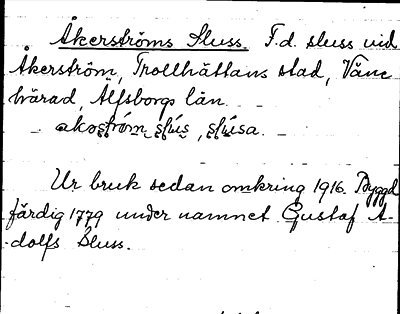 Åkerströms Sluss. F.d. sluss vid
Åkerström, Trollhättans stad, Väne
härad, Älfsborgs län.
Ur bruk sedan omkring 1916. Byggd
färdig 1779 under namnet Gustaf A-
dolfs Sluss.